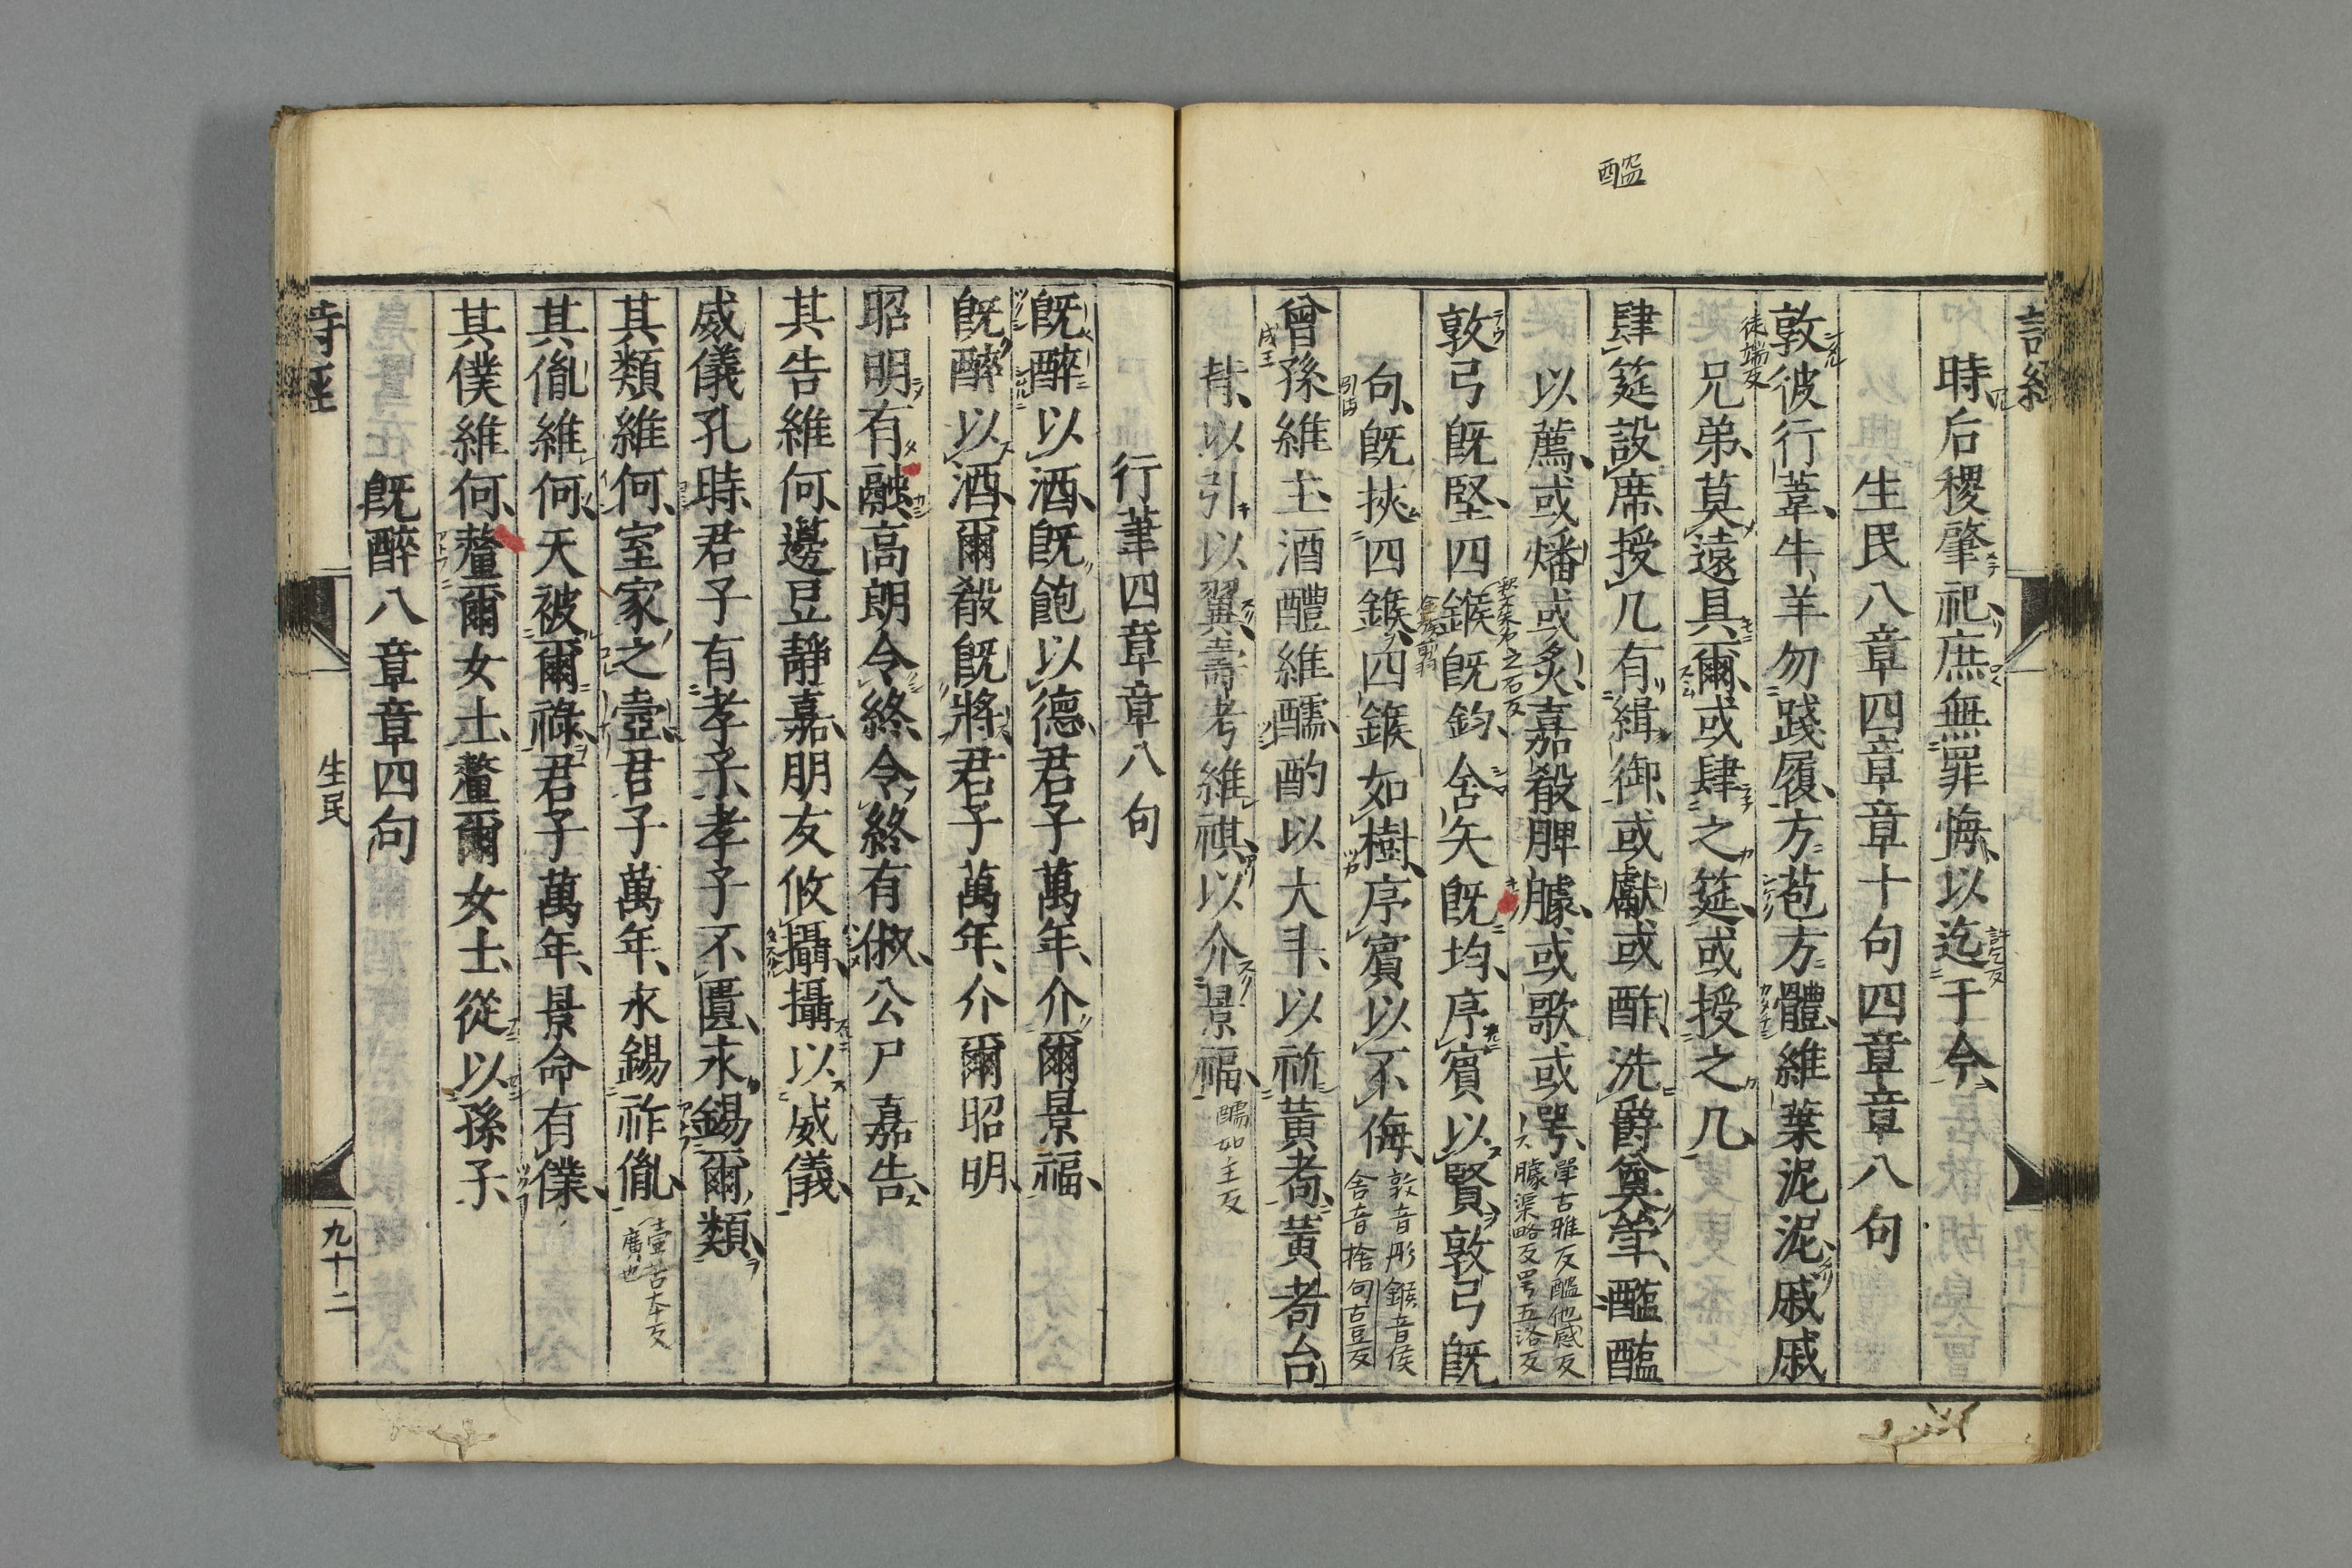 醓
時后稷肇祀庶無罪悔以迄于今
生民八章四章章十句四章章八句
敦彼行葦牛羊勿踐履方苞方體維葉泥泥戚戚
徒端反
兄弟莫遠具爾或肆之筵或授之几
肆筵設席授几有緝御或獻或酢洗爵奠斝醓醢
以薦或燔或炙嘉殽脾臄或歌或咢
斝古雅反醓他感反
臄渠略反咢五洛反
敦弓既堅四鍭既鈞舍矢既均序賓以賢敦弓既
句既挾四鍭四鍭如樹序賓以不侮
敦音彫鍭音侯
舍音捨句古豆反
曾孫維主酒醴維醹酌以大斗以祈黃耇黃耇台
成王
背以引以翼壽考維祺以介景福
醹如主反
行葦四章章八句
既醉以酒既飽以德君子萬年介爾景福
既醉以酒爾殽既將君子萬年介爾昭明
昭明有融高朗令終令終有俶公尸嘉告
其告維何籩豆靜嘉朋友攸攝攝以威儀
威儀孔時君子有孝子孝子不匱永錫爾類
其類維何室家之壼君子萬年永錫祚胤
壼苦本反
廣也
其胤維何天被爾祿君子萬年景命有僕
其僕維何釐爾女士釐爾女士從以孫子
既醉八章章四句
詩經
生民
九十二